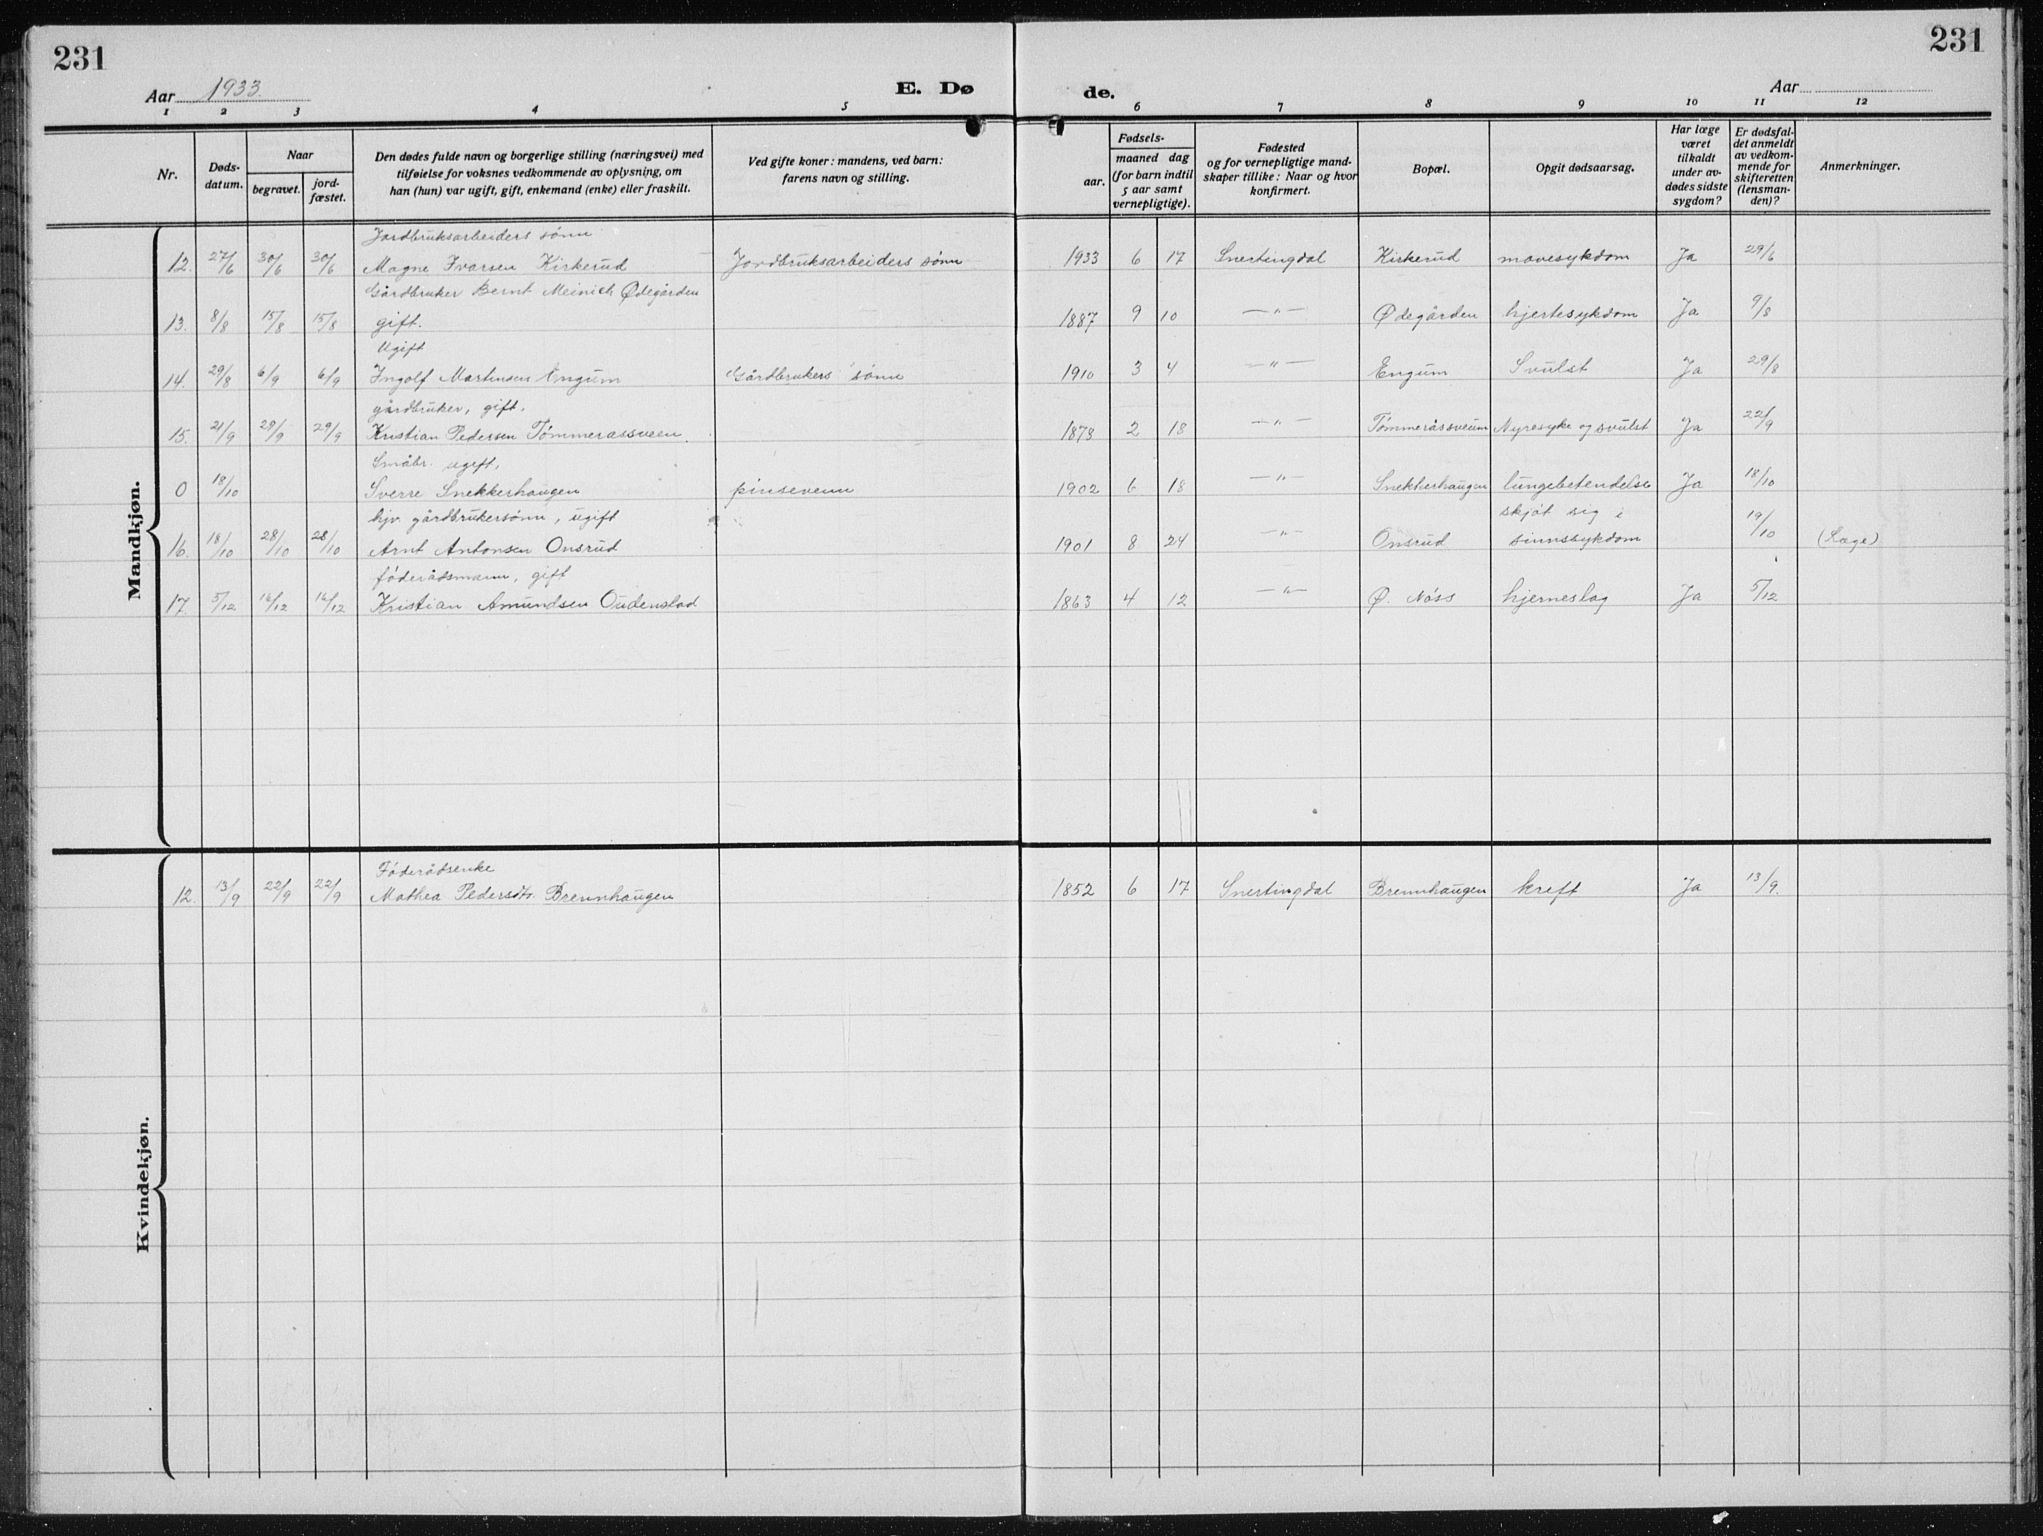 231
231
Aar 1933.
E. Dø
de.
Aar
1 2 3 4 5 6 7 8 9 10 11 12
Nr.
Døds-
datum.
Naar
begravet.
jord-
fæstet.
Den dødes fulde navn og borgerlige stilling (næringsvei) med
tilføielse for voksnes vedkommende av oplysning, om
han (hun) var ugift, gift, enkemand (enke) eller fraskilt.
Ved gifte koner: mandens, ved barn:
farens navn og stilling.
Fødsels-
aar.
maaned dag
(for barn indtil
5 aar samt
vernepligtige).
Fødested
og for vernepligtige mand-
skaper tillike: Naar og hvor
konfirmert.
Bopæl.
Opgit dødsaarsag.
Har læge
været
tilkaldt
under av-
dødes sidste
sygdom?
Er dødsfal-
det anmeldt
av vedkom-
mende for
skifteretten
(lensman-
den)?
Anmerkninger.
Mandkjøn.
Jordbruksarbeiders sønn
12. 27/6 30/6 30/6 Magne Ivarsen Kirkerud Jordbruksarbeiders sønn 1933 6 17 Snertingdal Kirkerud mavesykdom Ja 29/6
Gårdbruker Bernt Meinich Ødegården
13. 8/8 15/8 15/8 gift. 1887 9 10 —"— Ødegården hjertesykdom Ja 9/8
Ugift
14. 29/8 6/9 6/9 Ingolf Martinsen Engum Gårdbrukers sønn 1910 3 4 —"— Engum Svulst Ja 29/8
gårdbruker, gift.
15. 21/9 29/9 29/9 Kristian Pedersen Tømmeråssveen. 1878 2 18 —"— Tømmeråssveum Nyresyke og svulst Ja 22/9
Småbr. ugift,
0 18/10 Sverre Snekkerhaugen pinsevenn 1902 6 18 —"— Snekkerhaugen lungebetendelse Ja 18/10
hjv. gårdbrukersønn, ugift skjøt sig i
16. 18/10 28/10 28/10 Arnt Antonsen Onsrud 1901 8 24 —"— Onsrud sinnssykdom 19/10
føderådsmann, gift
17. 5/12 16/12 16/12 Kristian Amundsen Oudenstad 1863 4 12 —"— Ø. Nøss hjerneslag Ja 5/12
Kvindekjøn.
Føderådsenke
12. 13/9 22/9 22/9 Mathea Pedersdtr. Brennhaugen 1852 6 17 Snertingdal Brennhaugen kreft Ja 13/9.